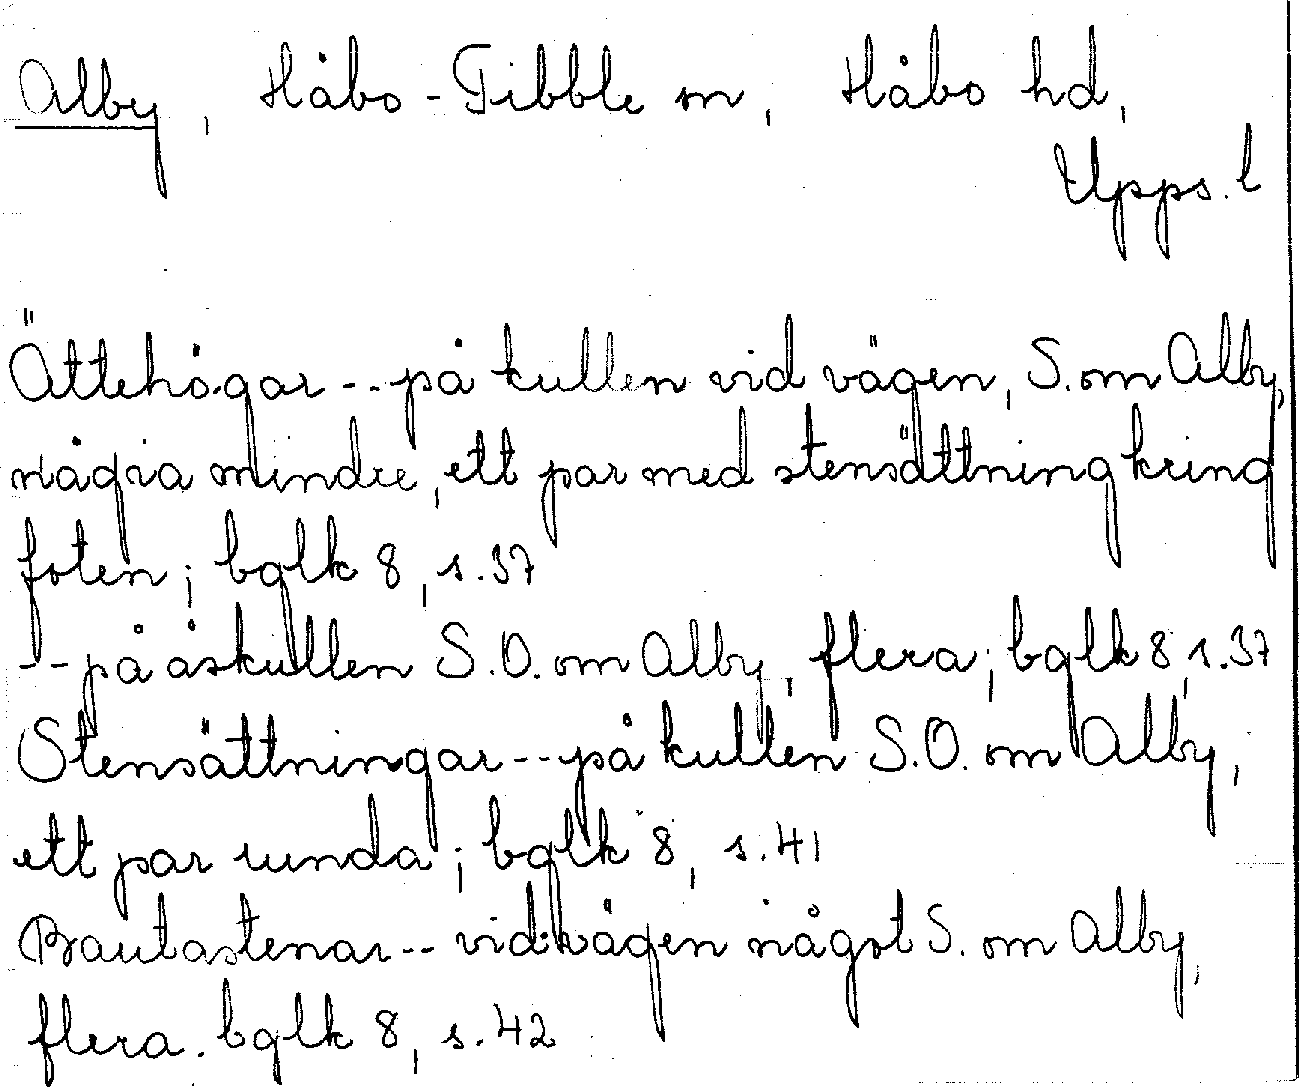 Alby, Håbo-Tibble sn, Håbo hd,
Upps. l
Ättehögar -- på kullen vid vägen, S. om Alby,
några mindre, ett par med stensättning kring
foten; bglk 8, s. 37
-- på åskullen S.O. om Alby, flera; bglk 8, s. 37
Stensättningar -- på kullen S.O. om Alby,
ett par runda; bglk 8, s. 41
Bautastenar -- vid vägen något S. om Alby,
flera. bglk 8, s. 42